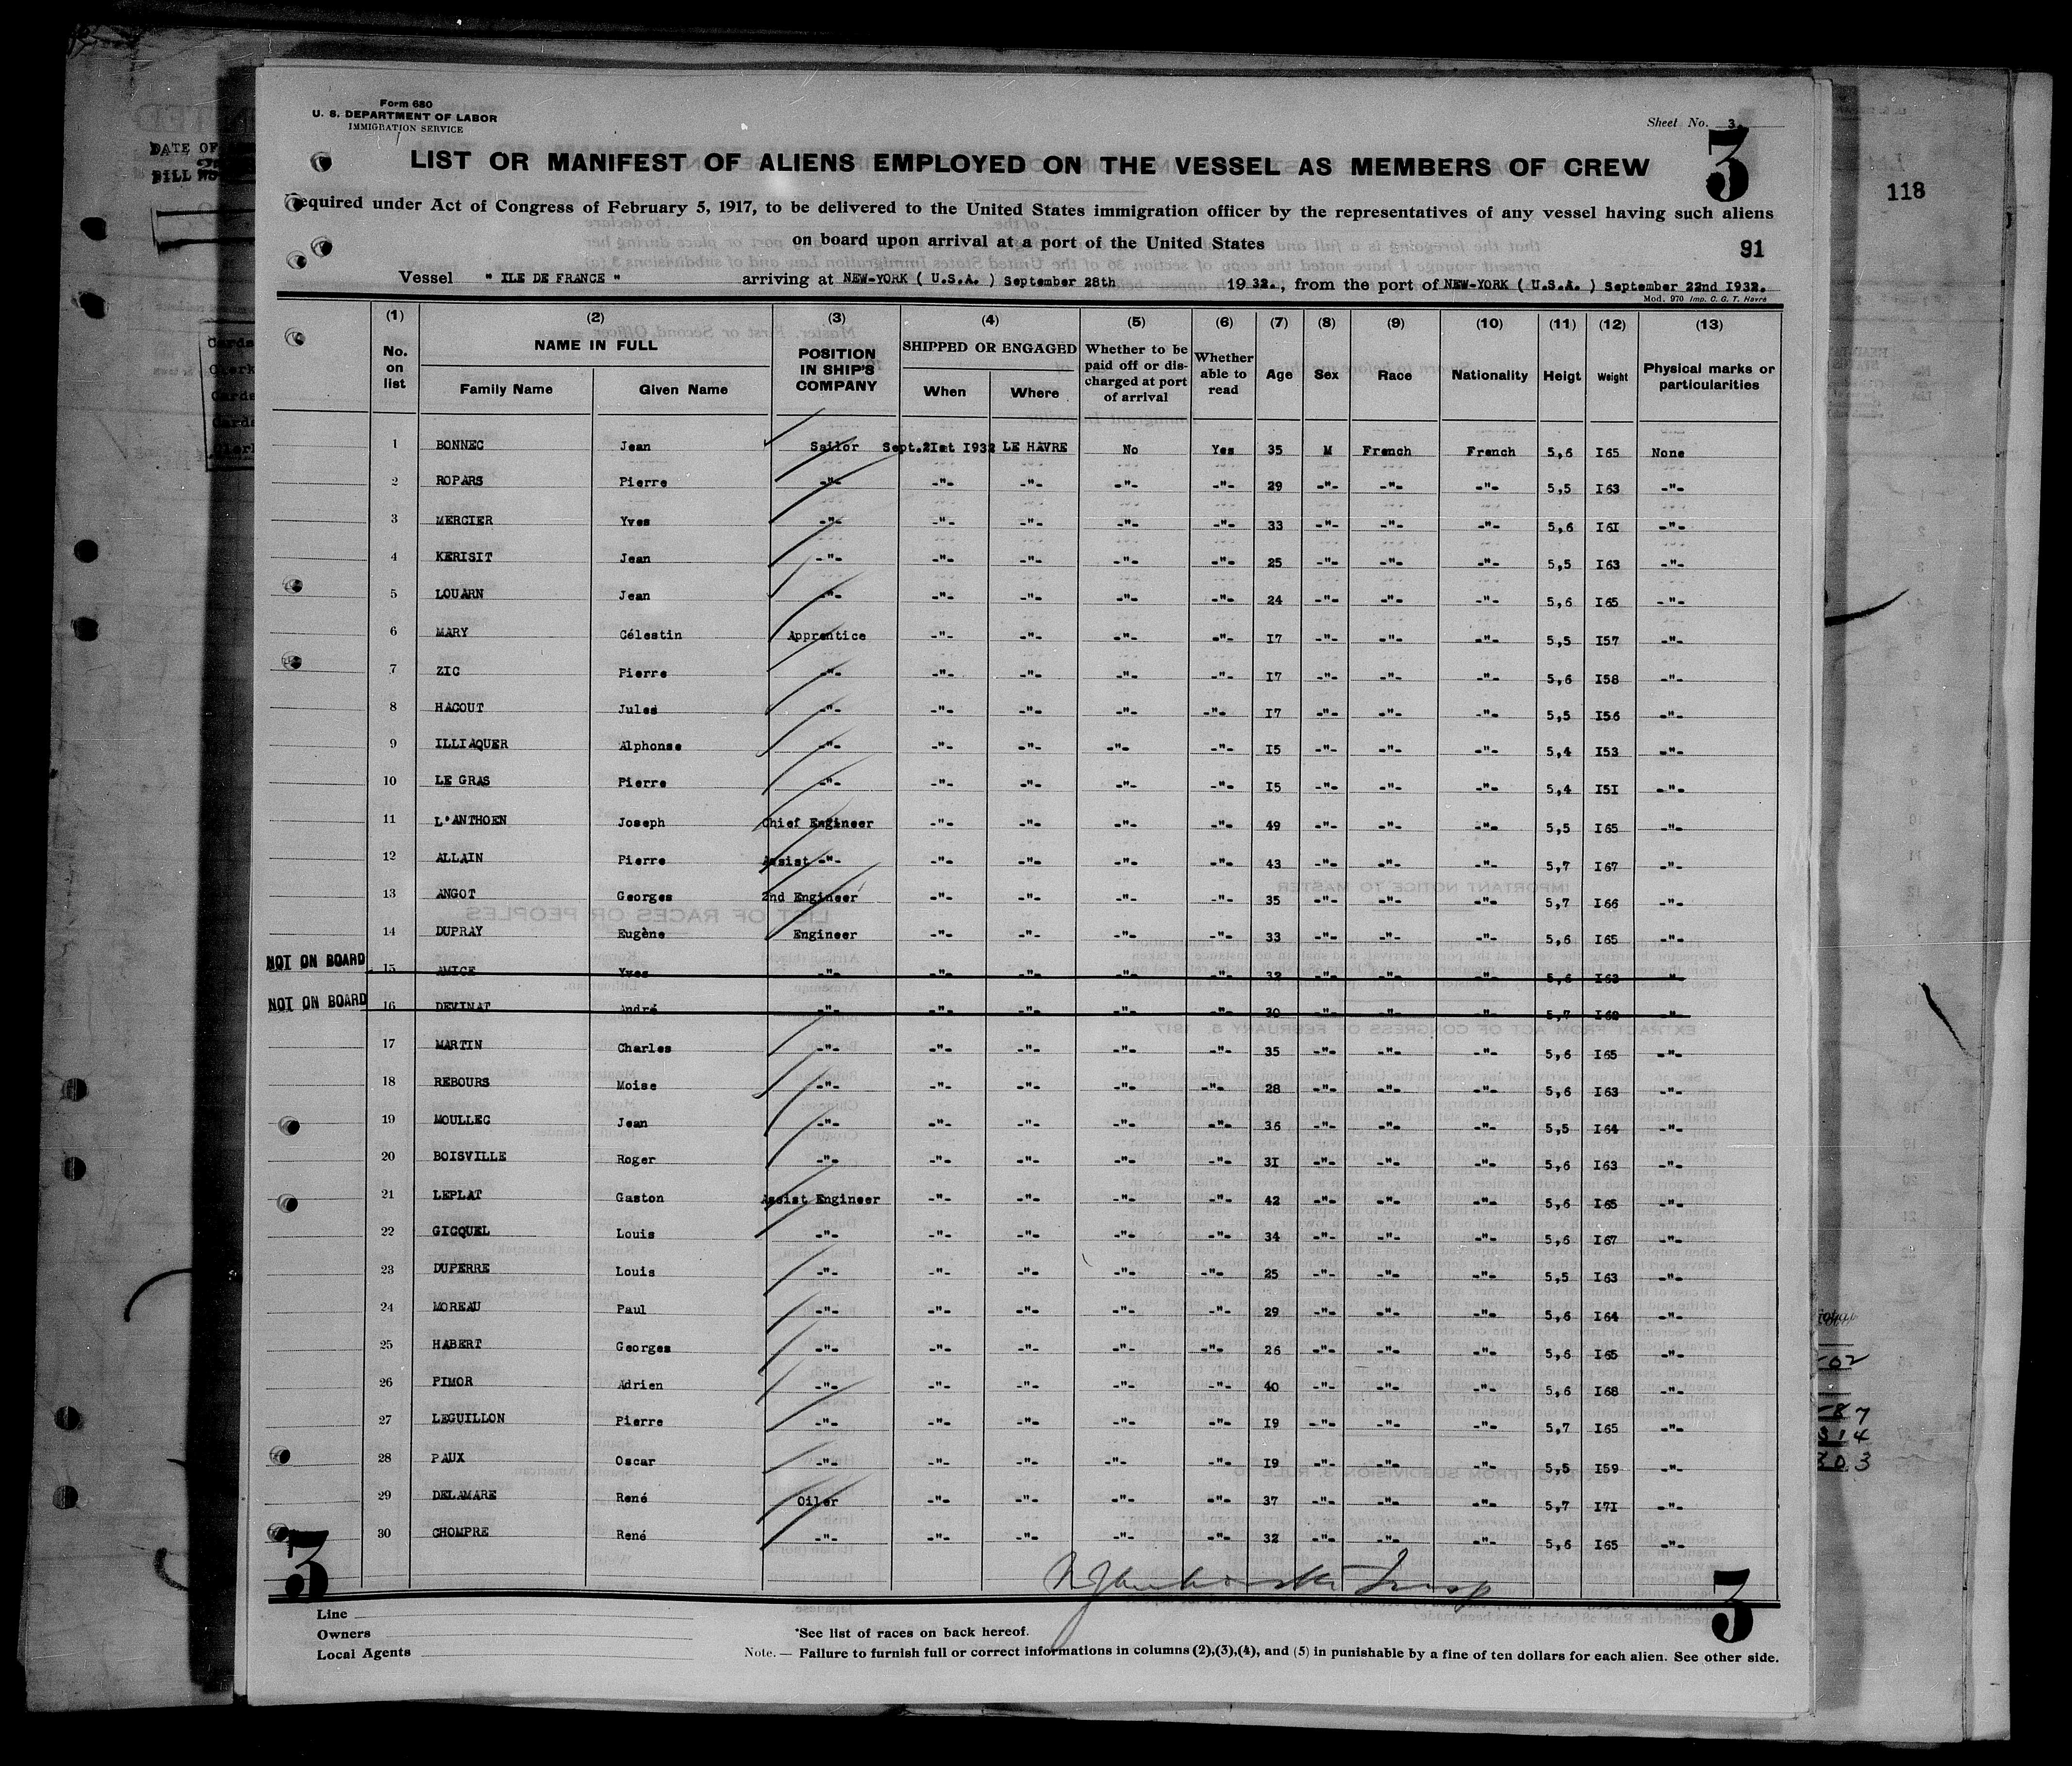 Form 680
U. S. DEPARTMENT OF LABOR
IMMIGRATION SERVICE
Sheet No. 3.
3
LIST OR MANIFEST OF ALIENS EMPLOYED ON THE VESSEL AS MEMBERS OF CREW
118
equired under Act of Congress of February 5, 1917, to be delivered to the United States immigration officer by the representatives of any vessel having such aliens
on board upon arrival at a port of the United States
91
Vessel " ILE DE FRANCE " arriving at NEW-YORK ( U.S.A. ) September 28th 1932., from the port of NEW-YORK ( U.S.A. ) September 22nd I932.
Mod. 970 Imp. C. G. T. Havre
(1) (2) (3) (4) (5) (6) (7) (8) (9) (10) (11) (12) (13)
No. on list NAME IN FULL Family Name Given Name POSITION IN SHIP'S COMPANY SHIPPED OR ENGAGED When Where Whether to be paid off or discharged at port of arrival Whether able to read Age Sex Race Nationality Heigt Weight Physical marks or particularities
1 BONNEC Jean Sailor Sept.2Ist I932 LE HAVRE No Yes 35 M French French 5,6 I65 None
2 ROPARS Pierre -"- -"- -"- -"- -"- 29 -"- -"- -"- 5,5 I63 -"-
3 MERCIER Yves -"- -"- -"- -"- -"- 33 -"- -"- -"- 5,6 I6I -"-
4 KERISIT Jean -"- -"- -"- -"- -"- 25 -"- -"- -"- 5,5 I63 -"-
5 LOUARN Jean -"- -"- -"- -"- -"- 24 -"- -"- -"- 5,6 I65 -"-
6 MARY Célestin Apprentice -"- -"- -"- -"- I7 -"- -"- -"- 5,5 I57 -"-
7 ZIC Pierre -"- -"- -"- -"- -"- I7 -"- -"- -"- 5,6 I58 -"-
8 HACOUT Jules -"- -"- -"- -"- -"- I7 -"- -"- -"- 5,5 I56 -"-
9 ILLIAQUER Alphonse -"- -"- -"- -"- -"- I5 -"- -"- -"- 5,4 I53 -"-
10 LE GRAS Pierre -"- -"- -"- -"- -"- I5 -"- -"- -"- 5,4 I5I -"-
11 L'ANTHOEN Joseph Chief Engineer -"- -"- -"- -"- 49 -"- -"- -"- 5,5 I65 -"-
12 ALLAIN Pierre Assist -"- -"- -"- -"- -"- 43 -"- -"- -"- 5,7 I67 -"-
13 ANGOT Georges 2nd Engineer -"- -"- -"- -"- 35 -"- -"- -"- 5,7 I66 -"-
14 DUPRAY Eugène Engineer -"- -"- -"- -"- 33 -"- -"- -"- 5,6 I65 -"-
NOT ON BOARD 15 AMICE Yves -"- -"- -"- -"- -"- 32 -"- -"- -"- 5,6 I63 -"-
NOT ON BOARD 16 DEVINAT André -"- -"- -"- -"- -"- 30 -"- -"- -"- 5,7 -"-
17 MARTIN Charles -"- -"- -"- -"- -"- 35 -"- -"- -"- 5,6 I65 -"-
18 REBOURS Moise -"- -"- -"- -"- -"- 28 -"- -"- -"- 5,6 I63 -"-
19 MOULLEC Jean -"- -"- -"- -"- -"- 36 -"- -"- -"- 5,5 I64 -"-
20 BOISVILLE Roger -"- -"- -"- -"- -"- 3I -"- -"- -"- 5,6 I63 -"-
21 LEPLAT Gaston Assist Engineer -"- -"- -"- -"- 42 -"- -"- -"- 5,6 I65 -"-
22 GICQUEL Louis -"- -"- -"- -"- -"- 34 -"- -"- -"- 5,6 I67 -"-
23 DUPERRE Louis -"- -"- -"- -"- -"- 25 -"- -"- -"- 5,5 I63 -"-
24 MOREAU Paul -"- -"- -"- -"- -"- 29 -"- -"- -"- 5,6 I64 -"-
25 HABERT Georges -"- -"- -"- -"- -"- 26 -"- -"- -"- 5,6 I65 -"-
26 PIMOR Adrien -"- -"- -"- -"- -"- 40 -"- -"- -"- 5,6 I68 -"-
27 LEGUILLON Pierre -"- -"- -"- -"- -"- I9 -"- -"- -"- 5,7 I65 -"-
28 PAUX Oscar -"- -"- -"- -"- -"- I9 -"- -"- -"- 5,5 I59 -"-
29 DELAMARE René Oiler -"- -"- -"- -"- 37 -"- -"- -"- 5,7 I7I -"-
30 CHOMPRE René -"- -"- -"- -"- -"- 32 -"- -"- -"- 5,6 I65 -"-
3
3
Line
Owners
Local Agents
*See list of races on back hereof.
Note. — Failure to furnish full or correct informations in columns (2),(3),(4), and (5) in punishable by a fine of ten dollars for each alien. See other side.
DATE OF
BILL NO